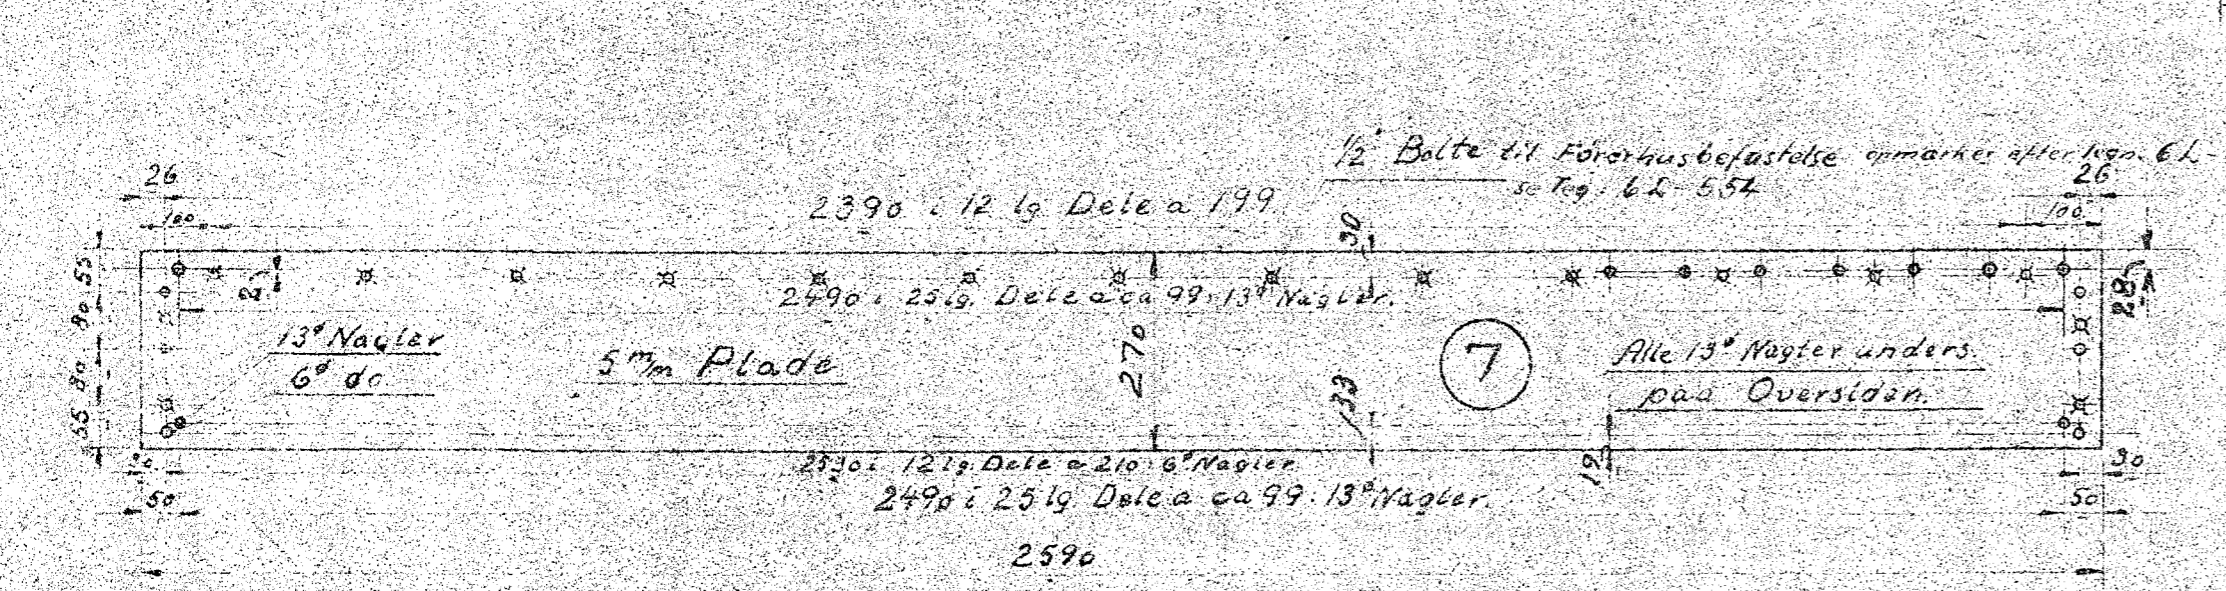 1/2" Bolte til Förerhusbefästelse opmärkes efter tegn. 6L-
se Teg. 6L-552
26
100
2390 i 12 lg Dele a 199
30
26
100
55
80
80
55
2490 i 25 lg. Dele a ca 99. 13ᵈ Nagler.
28
13ᵈ Nagler
6ᵈ do
5 m/m Plade
270
133
7
Alle 13ᵈ Nagler unders.
paa Oversiden.
2530 i 12 lg Dele a 210. 6ᵈ Nagler
50
2490 i 25 lg Dele a ca 99. 13ᵈ Nagler.
30
50
2590